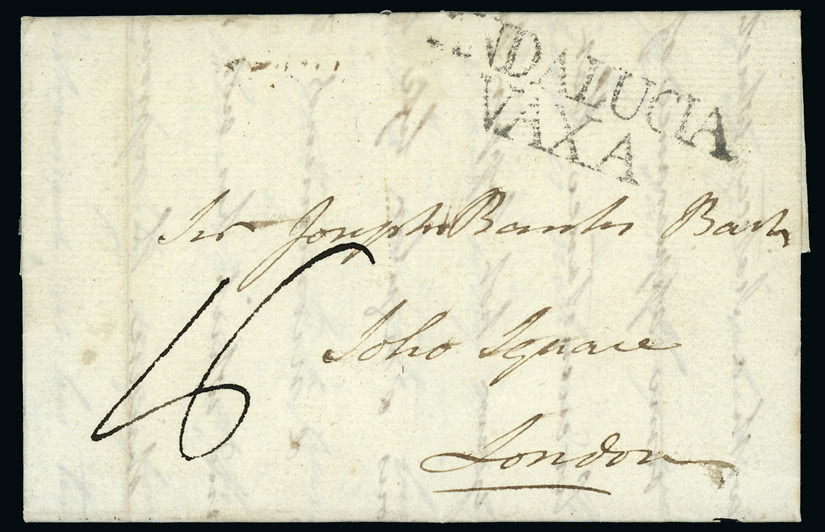 ANDALUCIA
VAXA
Sir Joseph Banks Bart
Soho Square
16
London